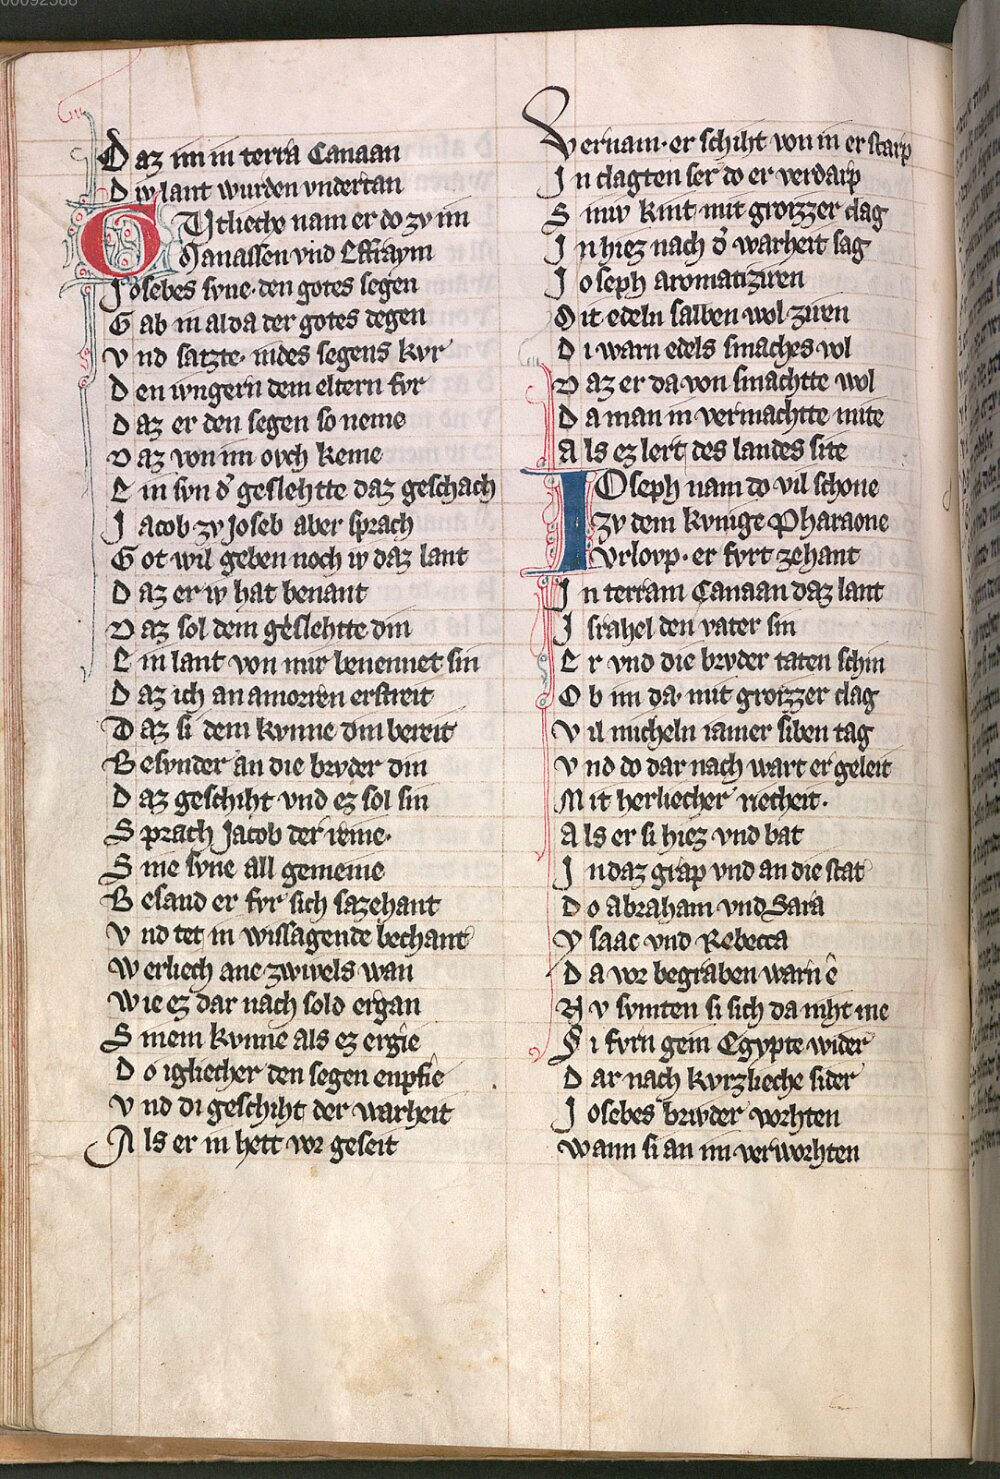 Daz im in terra Canaan
Div lant wurden vndertan
GVtliche nam er do zv im
Manassen vnd Effraym
Josebes svne · den gotes segen
Gab in al da der gotes degen
Vnd satzte · in des segens kvr
Den ivngern dem eltern fvr
Daz er den segen so neme
Daz von im ovch keme
Ein svn d᾽ geslehtte daz geschach
Jacob zv Joseb aber sprach
Got wil geben noch iv daz lant
Daz er iv hat benant
Daz sol dem geslehtte din
Ein lant von mir benennet sin
Daz ich an amorren erstreit
Daz si dem kvnne din bereit
Besvnder an die brvder din
Daz geschiht vnd ez sol sin
Sprach Jacob der reine ·
Sine svne all gemeine
Besand er fvr sich sazehant
Vnd tet in wissagende bechant
Werlich ane zwivels wan
Wie ez dar nach sold ergan
Sinem kvnne als ez ergie
Do igliecher den segen enpfie
Vnd di geschiht der warheit
Als er in hett vor geseit
Vernam · er schiht von in er starp
In clagten ser do er verdarp
Siniv kint mit grozzer clag
In hiez nach d᾽ warheit sag
Joseph aromatiziren
Mit edeln salben wol ziren
Di warn edels smaches vol
Daz er da von smachtte wol
Da man in vermachtte mite
Als ez lert des landes site
IOseph nam do vil schone
zv dem kvnige Pharaone
Vrlovp · er fvrt zehant
In terram Canaan daz lant
Israhel den vater sin
Er vnd die brvder taten schin
Ob im da · mit grozzer clag
Vil micheln iamer siben tag
Vnd do dar nach wart er geleit
Mit herliecher richeit ·
Als er si hiez vnd bat
In daz grap vnd an die stat
Do abraham vnd Sara
Ysaac vnd Rebecca
Da vor begraben warn ê
Nv svmten si sich da niht me
Si fvrn gein Egypte wider
Dar nach kvrzlieche sider
Josebes brvder vorhten
Wann si an im verworhten